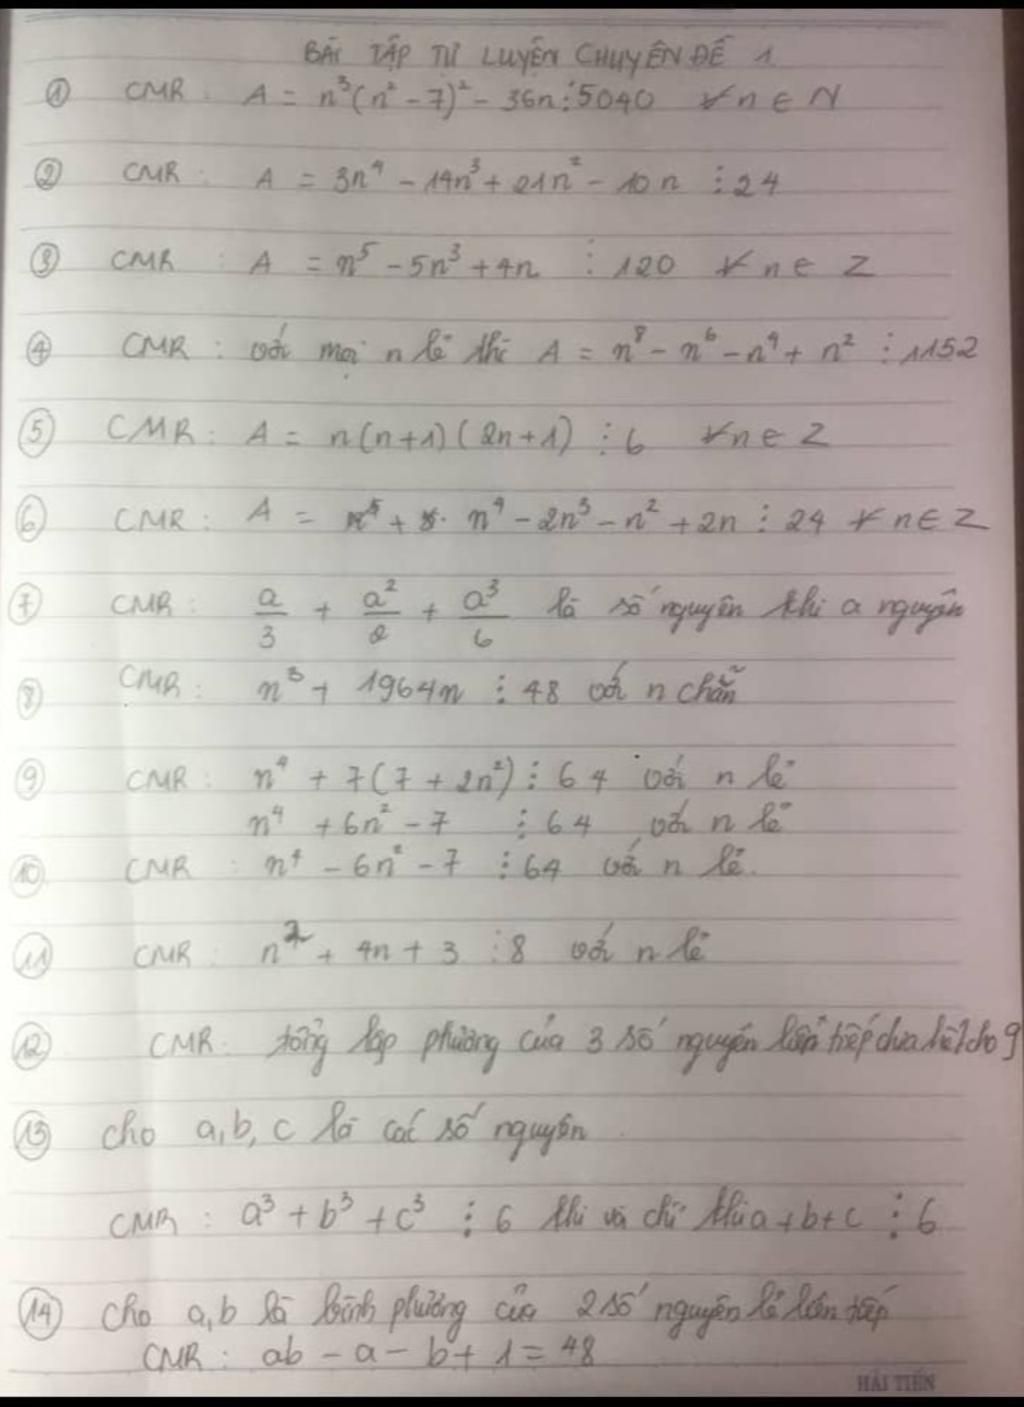 BÀI TẬP TỰ LUYỆN CHUYÊN ĐỀ 1
① CMR : A = n³(n² - 7)² - 36n ⋮ 5040 ∀n ∈ N
② CMR : A = 3n⁴ - 14n³ + 21n² - 10n ⋮ 24
③ CMR : A = n⁵ - 5n³ + 4n ⋮ 120 ∀n ∈ Z
④ CMR : với mọi n lẻ thì A = n⁸ - n⁶ - n⁴ + n² ⋮ 1152
⑤ CMR : A = n(n+1)(2n+1) ⋮ 6 ∀n ∈ Z
⑥ CMR : A = n⁴ - 2n³ - n² + 2n ⋮ 24 ∀n ∈ Z
⑦ CMR : a/3 + a²/2 + a³/6 là số nguyên khi a nguyên
⑧ CMR : n³ + 1964n ⋮ 48 với n chẵn
⑨ CMR : n⁴ + 7(7 + 2n²) ⋮ 64 với n lẻ
n⁴ + 6n² - 7 ⋮ 64 với n lẻ
⑩ CMR : n⁴ - 6n² - 7 ⋮ 64 với n lẻ.
⑪ CMR : n² + 4n + 3 ⋮ 8 với n lẻ
⑫ CMR : tổng lập phương của 3 số nguyên liên tiếp chia hết cho 9
⑬ cho a, b, c là các số nguyên
CMR : a³ + b³ + c³ ⋮ 6 khi và chỉ khi a + b + c ⋮ 6
⑭ Cho a, b là bình phương của 2 số nguyên lẻ liên tiếp
CMR : ab - a - b + 1 = 48
HẢI TIẾN